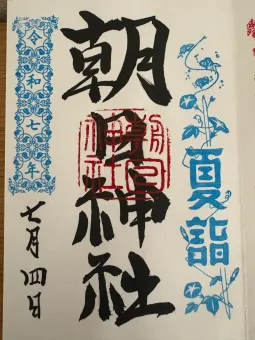 夏詣
朝日神社
朝日神社
令和七年
七月四日